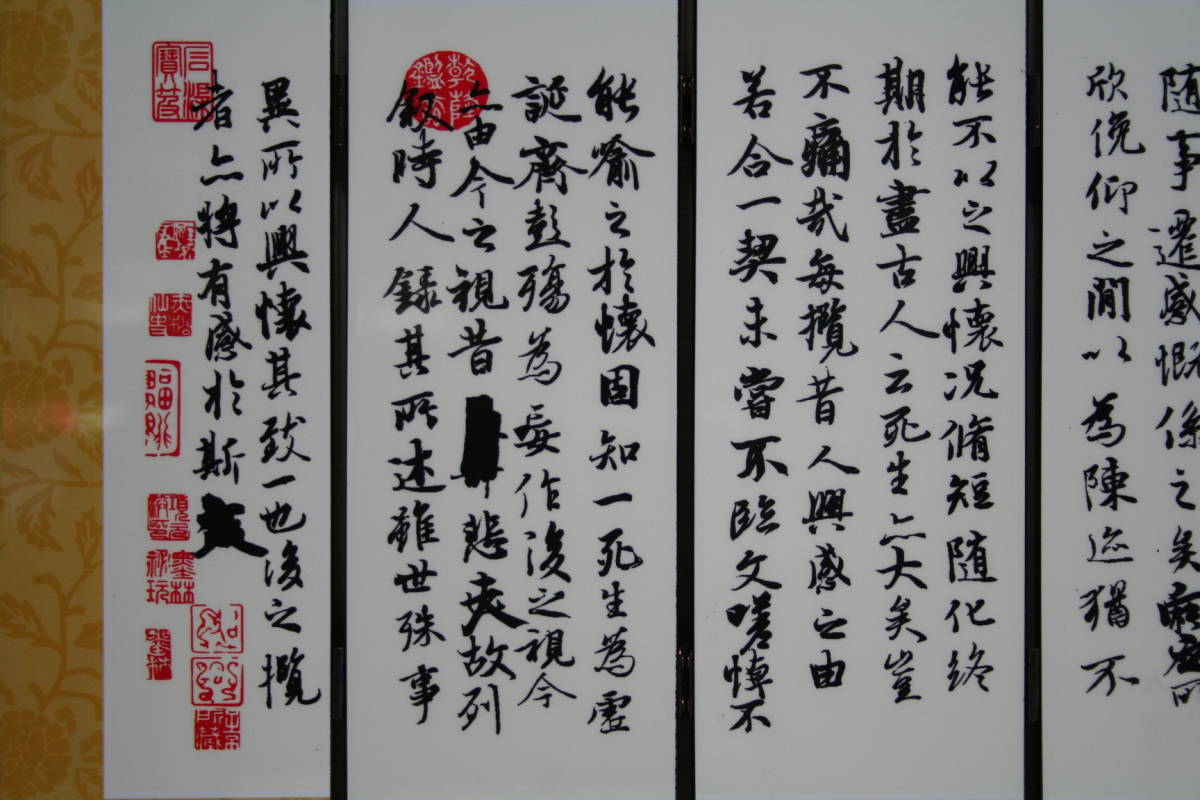 随事遷感慨係之矣向
欣俛仰之閒以為陳迹猶不
能不以之興懷況脩短隨化終
期於盡古人云死生亦大矣豈
不痛哉每攬昔人興感之由
若合一契未嘗不臨文嗟悼不
能喻之於懷固知一死生為虛
誕齊彭殤為妄作後之視今
亦由今之視昔悲夫故列
叙時人錄其所述雖世殊事
異所以興懷其致一也後之攬
者亦將有感於斯文